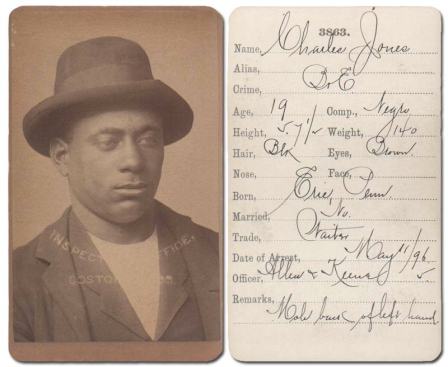 INSPECTOR'S OFFICE,
BOSTON, MASS
3863.
Name, Charles Jones
Alias,
Crime, B & E
Age, 19 Comp., Negro
Height, 5.7 1/2 Weight, 140
Hair, Blk Eyes, Brown.
Nose, Face,
Born, Erie, Penn.
Married, No.
Trade, Waiter
Date of Arrest, May 11/96.
Officer, Allen &
Remarks,
Mole back of left hand